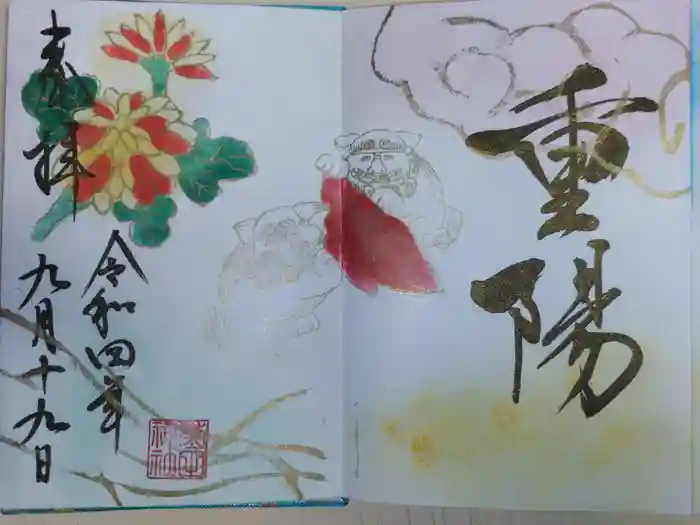 重陽
奉拝
令和四年
九月十九日